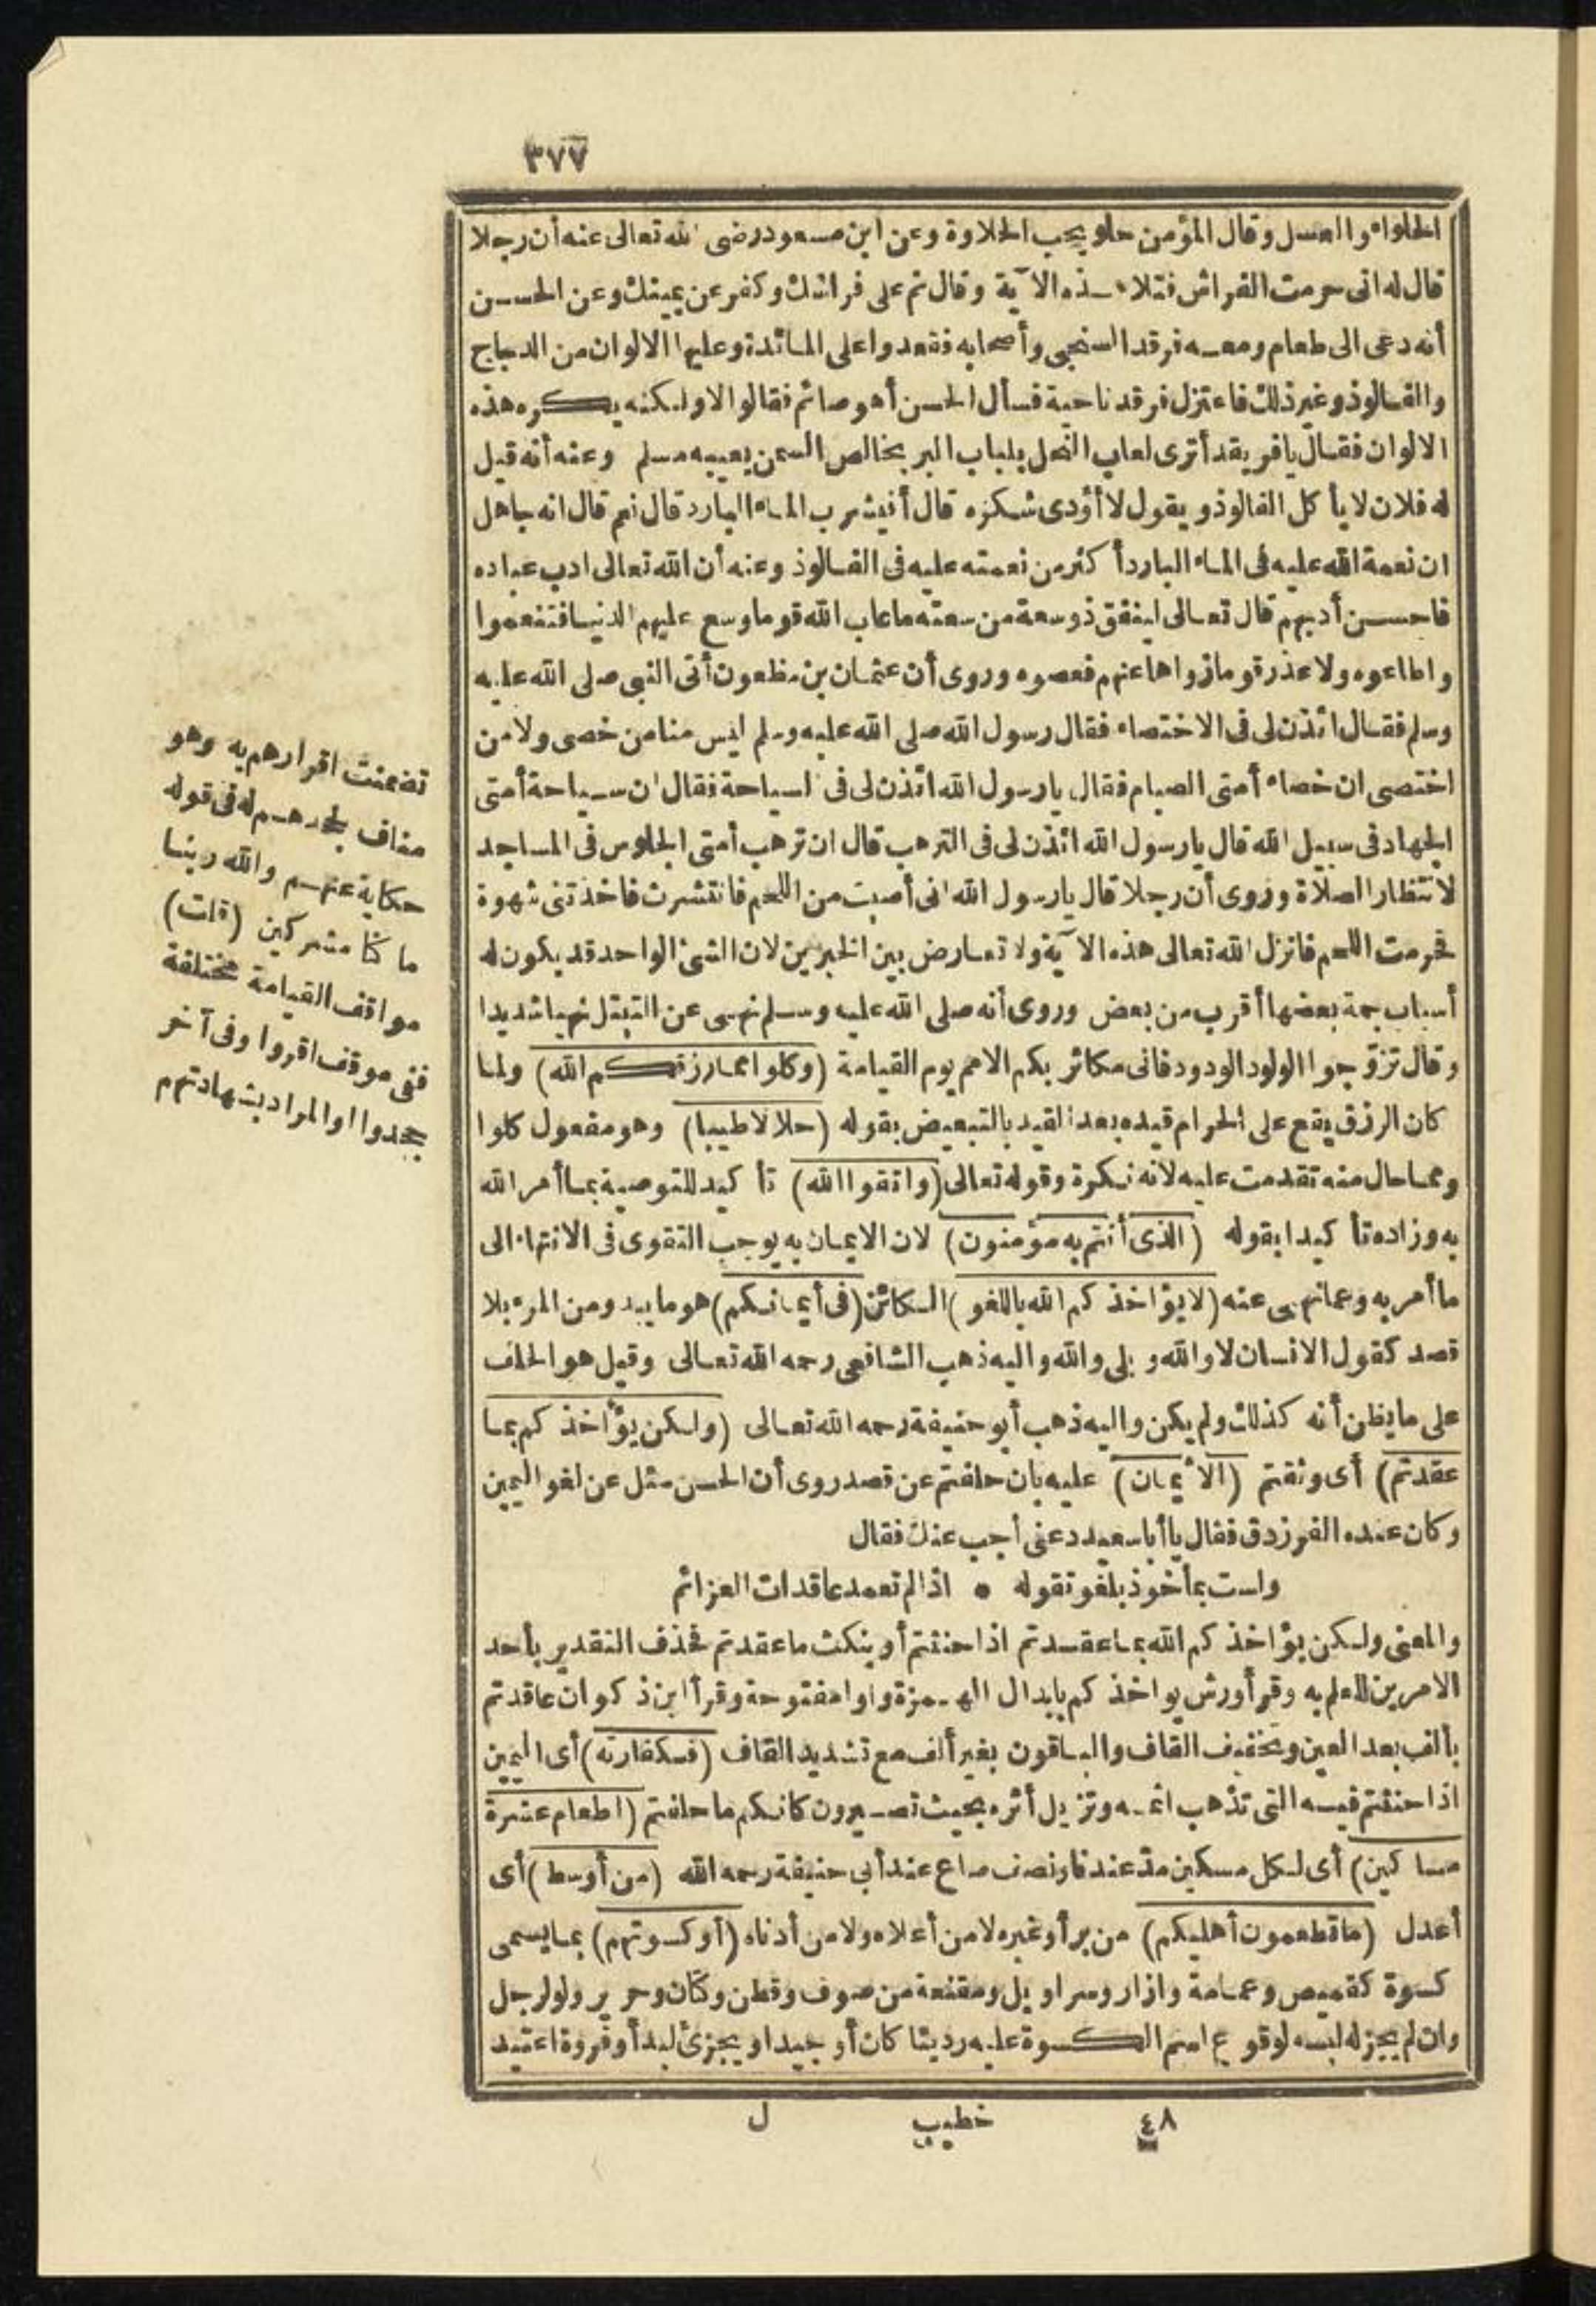 ٣٧٧
الحلواء والعسل وقال المؤمن حلو يحب الحلاوة وعن ابن مسعود رضى الله تعالى عنه أن رجلا
قال له انى حرمت الفراش فتلا هـذه الآية وقال نم على فراشك وكفر عن يمينك وعن الحسن
أنه دعى الى طعام ومعـه فرقد السنجى وأصحابه فقعدوا على المائدة وعليها الالوان من الدجاج
والفالوذ وغير ذلك فاعتزل فرقد ناحية فسأل الحسن أهو صائم فقالوا لا ولكنه يكره هذه
الالوان فقال يا فريقد أترى لعاب النحل بلباب البر بخالص السمن يعيبه مسلم وعنه أنه قيل
له فلان لا يأكل الفالوذ ويقول لا أؤدى شكره قال أفيشرب الماء البارد قال نعم قال انه جاهل
ان نعمة الله عليه فى الماء البارد أكثر من نعمته عليه فى الفالوذ وعنه أن الله تعالى ادب عباده
فاحسن أدبهم قال تعالى لينفق ذو سعة من سعته ما عاب الله قوما وسع عليهم الدنيا فتنعموا
واطاعوه ولا عذر قوما زواها عنهم فعصوه وروى أن عثمان بن مظعون أتى النبى صلى الله عليه
وسلم فقال ائذن لى فى الاختصاء فقال رسول الله صلى الله عليه وسلم ليس منا من خصى ولا من
اختصى ان خصاء أمتى الصيام فقال يا رسول الله ائذن لى فى السياحة فقال ان سـياحة أمتى
الجهاد فى سبيل الله قال يا رسول الله ائذن لى فى الترهب قال ان ترهب أمتى الجلوس فى المساجد
لانتظار الصلاة وروى أن رجلا قال يا رسول الله انى أصبت من اللحم فانتشرت فاخذتنى شهوة
فحرمت اللحم فانزل الله تعالى هذه الآية ولا تعارض بين الخبرين لان الشئ الواحد قد يكون له
أسباب جمة بعضها أقرب من بعض وروى أنه صلى الله عليه وسـلم نهـى عن التبتل نهيا شديدا
وقال تزوّجوا الولود الودود فانى مكاثر بكم الامم يوم القيامة (وكلوا مما رزقكم الله) ولما
كان الرزق يقع على الحرام قيده بعد القيد بالتبعيض بقوله (حلالا طيبا) وهو مفعول كلوا
ومما حال منه تقدمت عليه لانه نكرة وقوله تعالى (واتقوا الله) تأكيد للتوصية بما أمر الله
به وزاده تأكيدا بقوله (الذى أنتم به مؤمنون) لان الايمان به يوجب التقوى فى الانتهاء الى
ما أمر به وعما نهـى عنه (لا يؤاخذكم الله باللغو) الكائن (فى أيمانكم) هو ما يبدو من المرء بلا
قصد كقول الانسان لا والله وبلى والله واليه ذهب الشافعى رحمه الله تعالى وقيل هو الحلف
على ما يظن أنه كذلك ولم يكن واليه ذهب أبو حنيفة رحمه الله تعالى (ولكن يؤاخذكم بما
عقدتم) أى وثقتم (الأيمان) عليه بان حلفتم عن قصد روى أن الحسن سئل عن لغو اليمين
وكان عنده الفرزدق فقال يا أبا سعيد دعنى أجب عنك فقال
ولست بمأخوذ بلغو تقوله • اذا لم تعمد عاقدات العزائم
والمعنى ولكن يؤاخذكم الله بما عقـدتم اذا حنثتم أو بنكث ما عقدتم فحذف التقدير بأحد
الامرين للعلم به وقرأ ورش يواخذكم بابدال الهـمزة واوا مفتوحة وقرأ ابن ذكوان عاقدتم
بألف بعد العين وتخفيف القاف والباقون بغير ألف مع تشديد القاف (فكفارته) أى اليمين
اذا حنثتم فيـه التى تذهب اثمـه وتزيل أثره بحيث تصـيرون كانكم ما حلفتم (اطعام عشرة
مساكين) أى لكل مسكين مدّ عندنا ونصف صاع عند أبى حنيفة رحمه الله (من أوسط) أى
أعدل (ما تطعمون أهليكم) من بر أو غيره لا من أعلاه ولا من أدناه (أو كسوتهم) بما يسمى
كسوة كقميص وعمامة وازار وسراويل ومقنعة من صوف وقطن وكتان وحرير ولو لرجل
وان لم يجز له لبسه لوقوع اسم الكسوة عليه رديئا كان أو جيدا ويجزئ لبدأ وفروة اعتيد
تضمنت اقرارهم به وهو
مناف لجحدهـم له فى قوله
حكاية عنهـم والله ربنا
ما كنا مشركين (قلت)
مواقف القيامة مختلفة
ففى موقف اقروا وفى آخر
جحدوا او المراد بشهادتهم
٤٨ خطيب ل